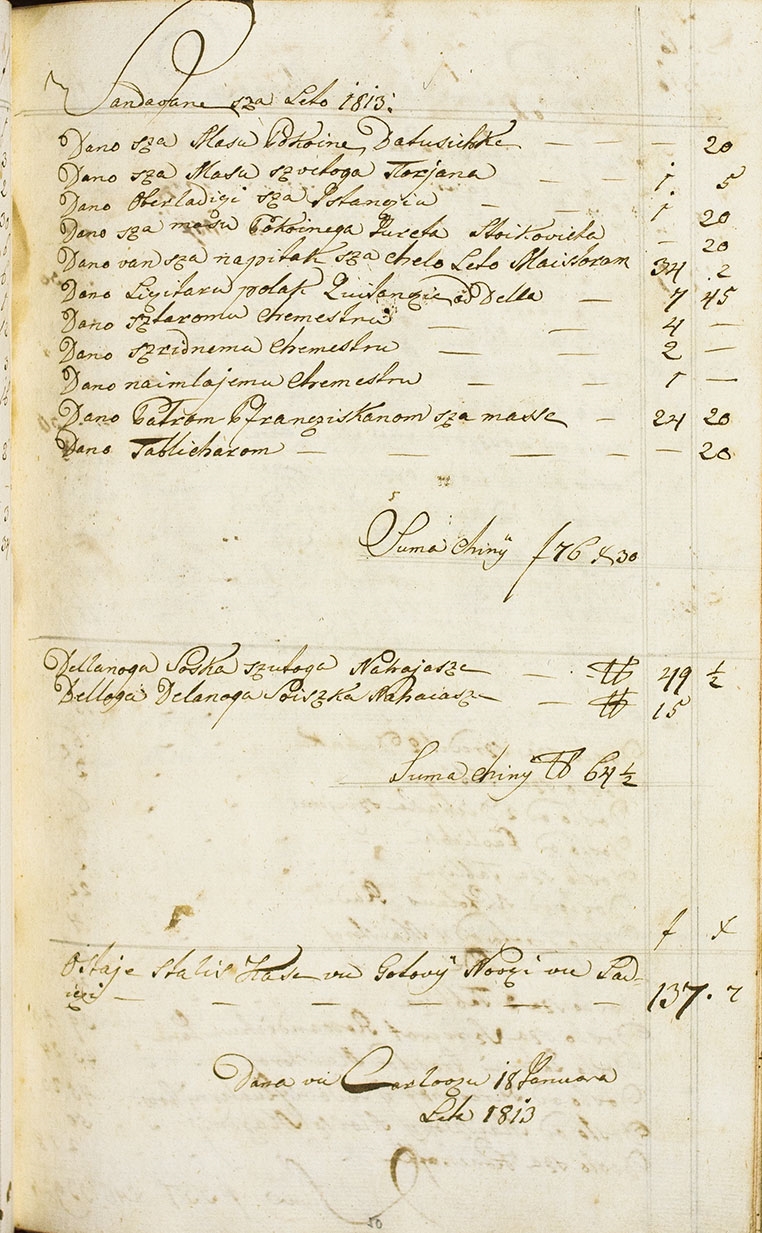 Vandavane sza Leto 1813:
Dano sza Masu Pokoine Datusichke — — — 20
Dano sza Masu szvetoga Florjana — — 1. 5
Dano Oberladigi sza Istangiu — — 1 20
Dano sza mašu Pokoinega Jureta Stoikovicha — 20
Dano van sza napitak sza chelo Leto Maistoram 34 2
Dano Ligitaru polak Quitangie od Della — 7 45
Dano sztaromu Chemestru — — 4 —
Dano szridnemu Chemestru — — 2 —
Dano naimlajemu Chemestru — — 1 —
Dano Patrom Pfranciskanom sza masse — 24 20
Dano Tablicharom — — — — — 20
Suma chiny f 76 x 30
Dellanoga Voska szutoga Nahajasze — ℔ 49 ½
Delloga Delanoga Voiszka Nahaiasze — ℔ 15
Suma chiny ℔ 64 ½
f x
Ostaje Stalis Kase vu Gotovy Novzi vu Lad-
igi — — — — — — 137. 7
Dana vu Carlovzu 18 Januara
Leta 1813
50